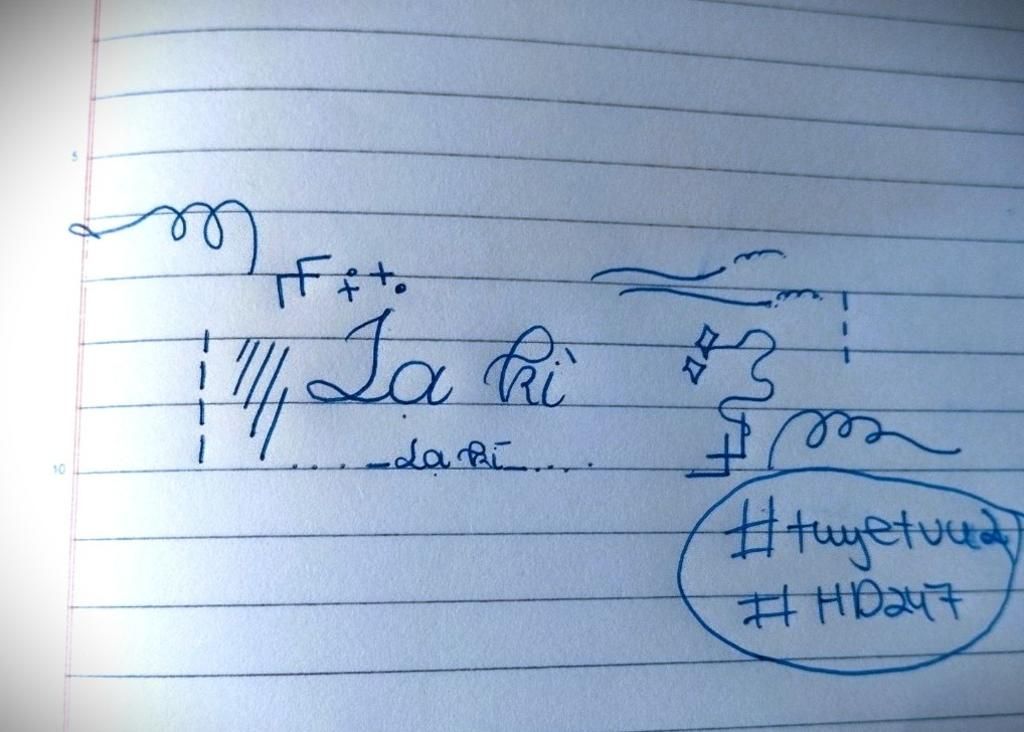 5
Lạ kì
10
....-Lạ kì-....
#tuyetvu2
#HD247